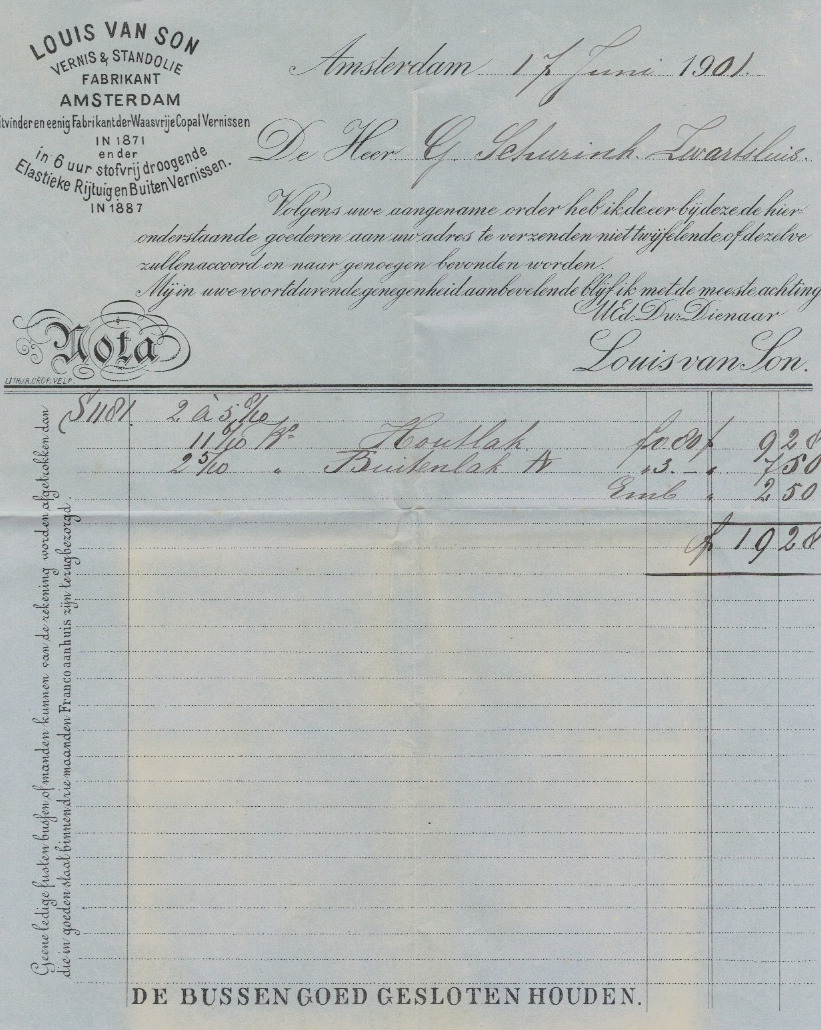 LOUIS VAN SON
VERNIS & STANDOLIE
FABRIKANT
AMSTERDAM
itvinder en eenig Fabrikant der Waasvrije Copal Vernissen
IN 1871
en der
in 6 uur stofvrij droogende
Elastieke Rijtuig en Buiten Vernissen.
IN 1887
Amsterdam 17 Juni 1901.
De Heer G Schurink Zwartsluis.
Volgens uwe aangename order heb ik de eer bij deze de hier-
onderstaande goederen aan uw adres te verzenden niet twijfelende of dezelve
zullen accoord en naar genoegen bevonden worden.
Mij in uwe voortdurende genegenheid aanbevelende blijf ik met de meeste achting
UEd. Dw. Dienaar
Nota
Louis van Son.
S 1181. 2 à 5 8/10
11 6/10 Ko Houtlak f 0.80 f 9 28
2 5/10 " Buitenlak " 3.- " 7 50
Emb " 2 50
f 19 28
Geene ledige fusten bussen of manden kunnen van de rekening worden afgetrokken dan
die in goeden staat binnen drie maanden Franco aan huis zijn terugbezorgd.
DE BUSSEN GOED GESLOTEN HOUDEN.